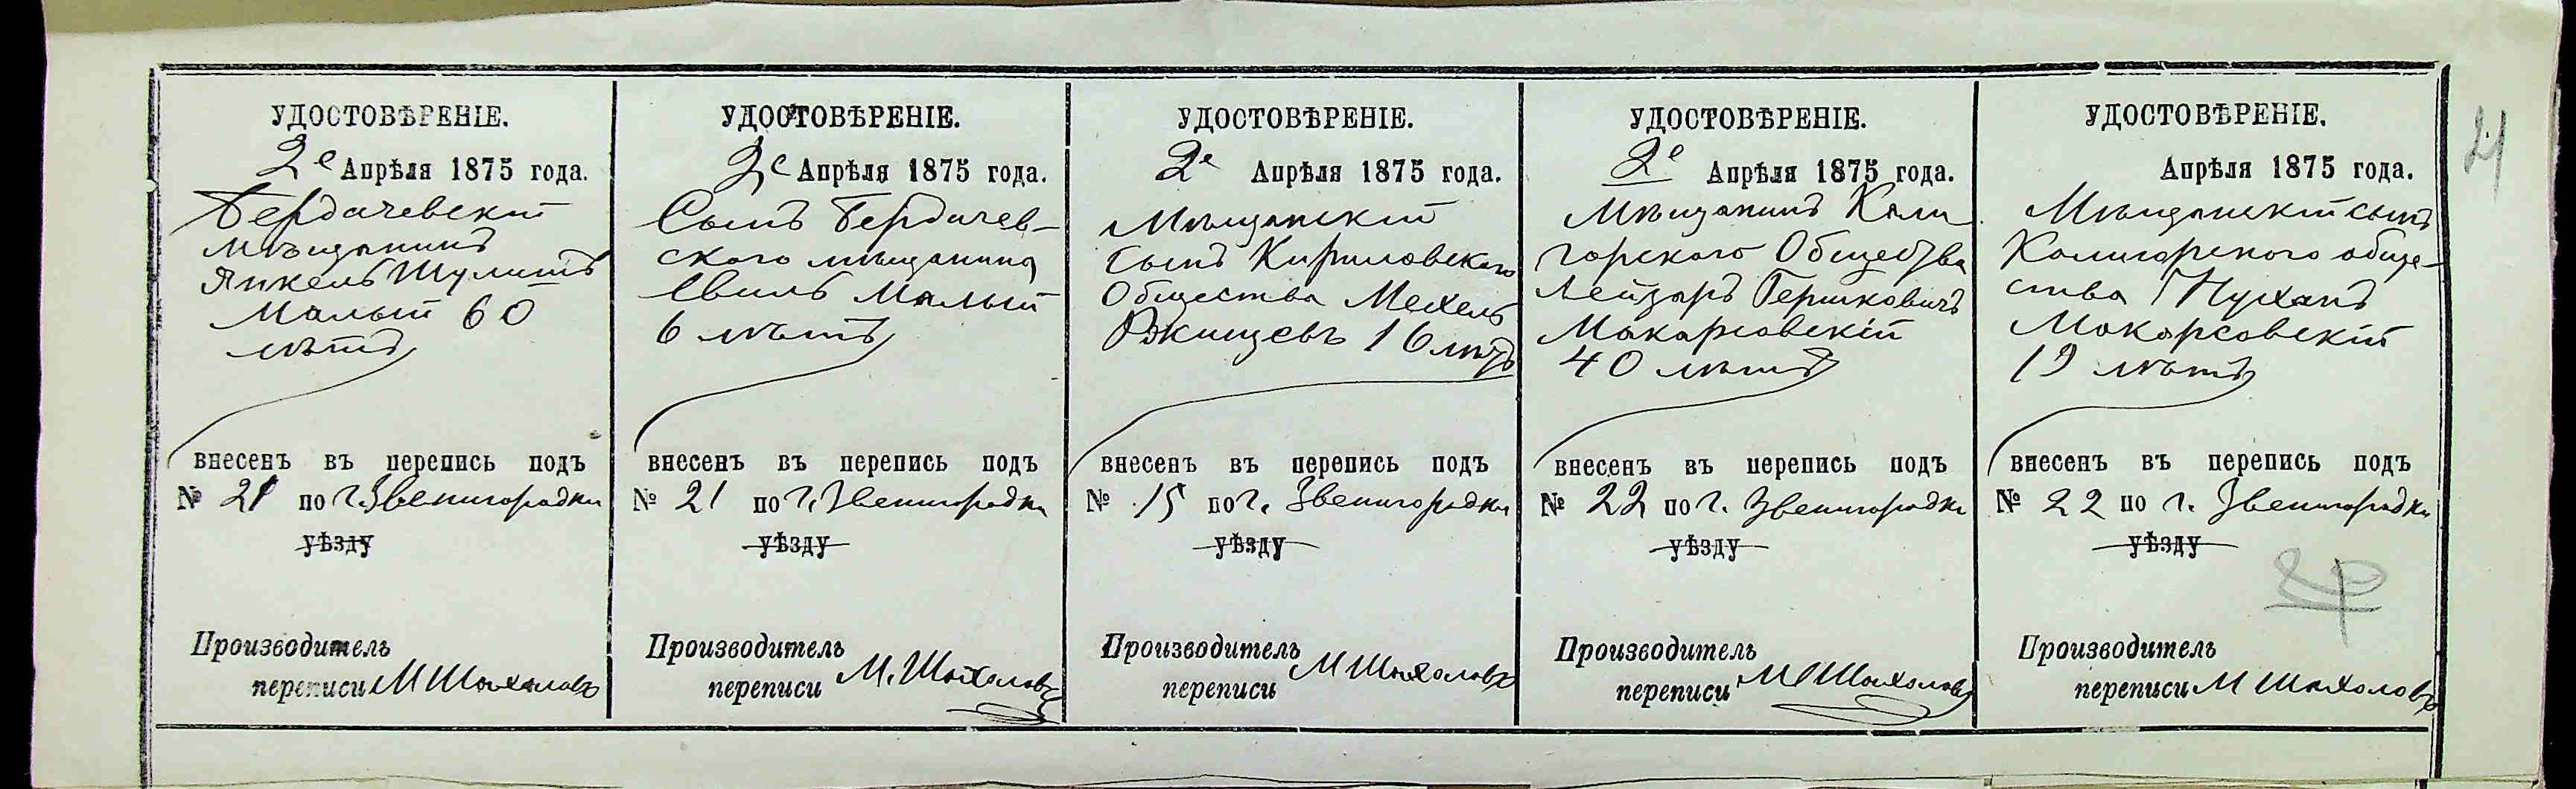 УДОСТОВѢРЕНІЕ.
2е Апрѣля 1875 года.
Бердичевскій
мѣщанинъ
Янкель Шулимъ
Малый 60
лѣтъ
внесенъ въ перепись подъ
№ 21 по г. Звенигородки
уѣзду
Производитель
переписи М Шахоловъ
УДОСТОВѢРЕНІЕ.
2е Апрѣля 1875 года.
Сынъ Бердичев-
ского мѣщанина
Малый
6 лѣтъ
внесенъ въ перепись подъ
№ 21 по г. Звенигородки
уѣзду
Производитель
переписи М. Шахоловъ
УДОСТОВѢРЕНІЕ.
2е Апрѣля 1875 года.
Мѣщанскій
сынъ Кириловского
Общества Мехель
Ржищевъ 16 лѣтъ
внесенъ въ перепись подъ
№ 15 по г. Звенигородки
уѣзду
Производитель
переписи М Шахоловъ
УДОСТОВѢРЕНІЕ.
2е Апрѣля 1875 года.
Мѣщанинъ Кали
горского Общества
Лейзаръ Гершковичъ
Макарсовскій
40 лѣтъ
внесенъ въ перепись подъ
№ 22 по г. Звенигородки
уѣзду
Производитель
переписи М Шахоловъ
УДОСТОВѢРЕНІЕ.
Апрѣля 1875 года.
Мѣщанскій сынъ
Калигорского обще-
ства Нусханъ
Макарсовскій
19 лѣтъ
внесенъ въ перепись подъ
№ 22 по г. Звенигородки
уѣзду
Производитель
переписи М Шахоловъ
21